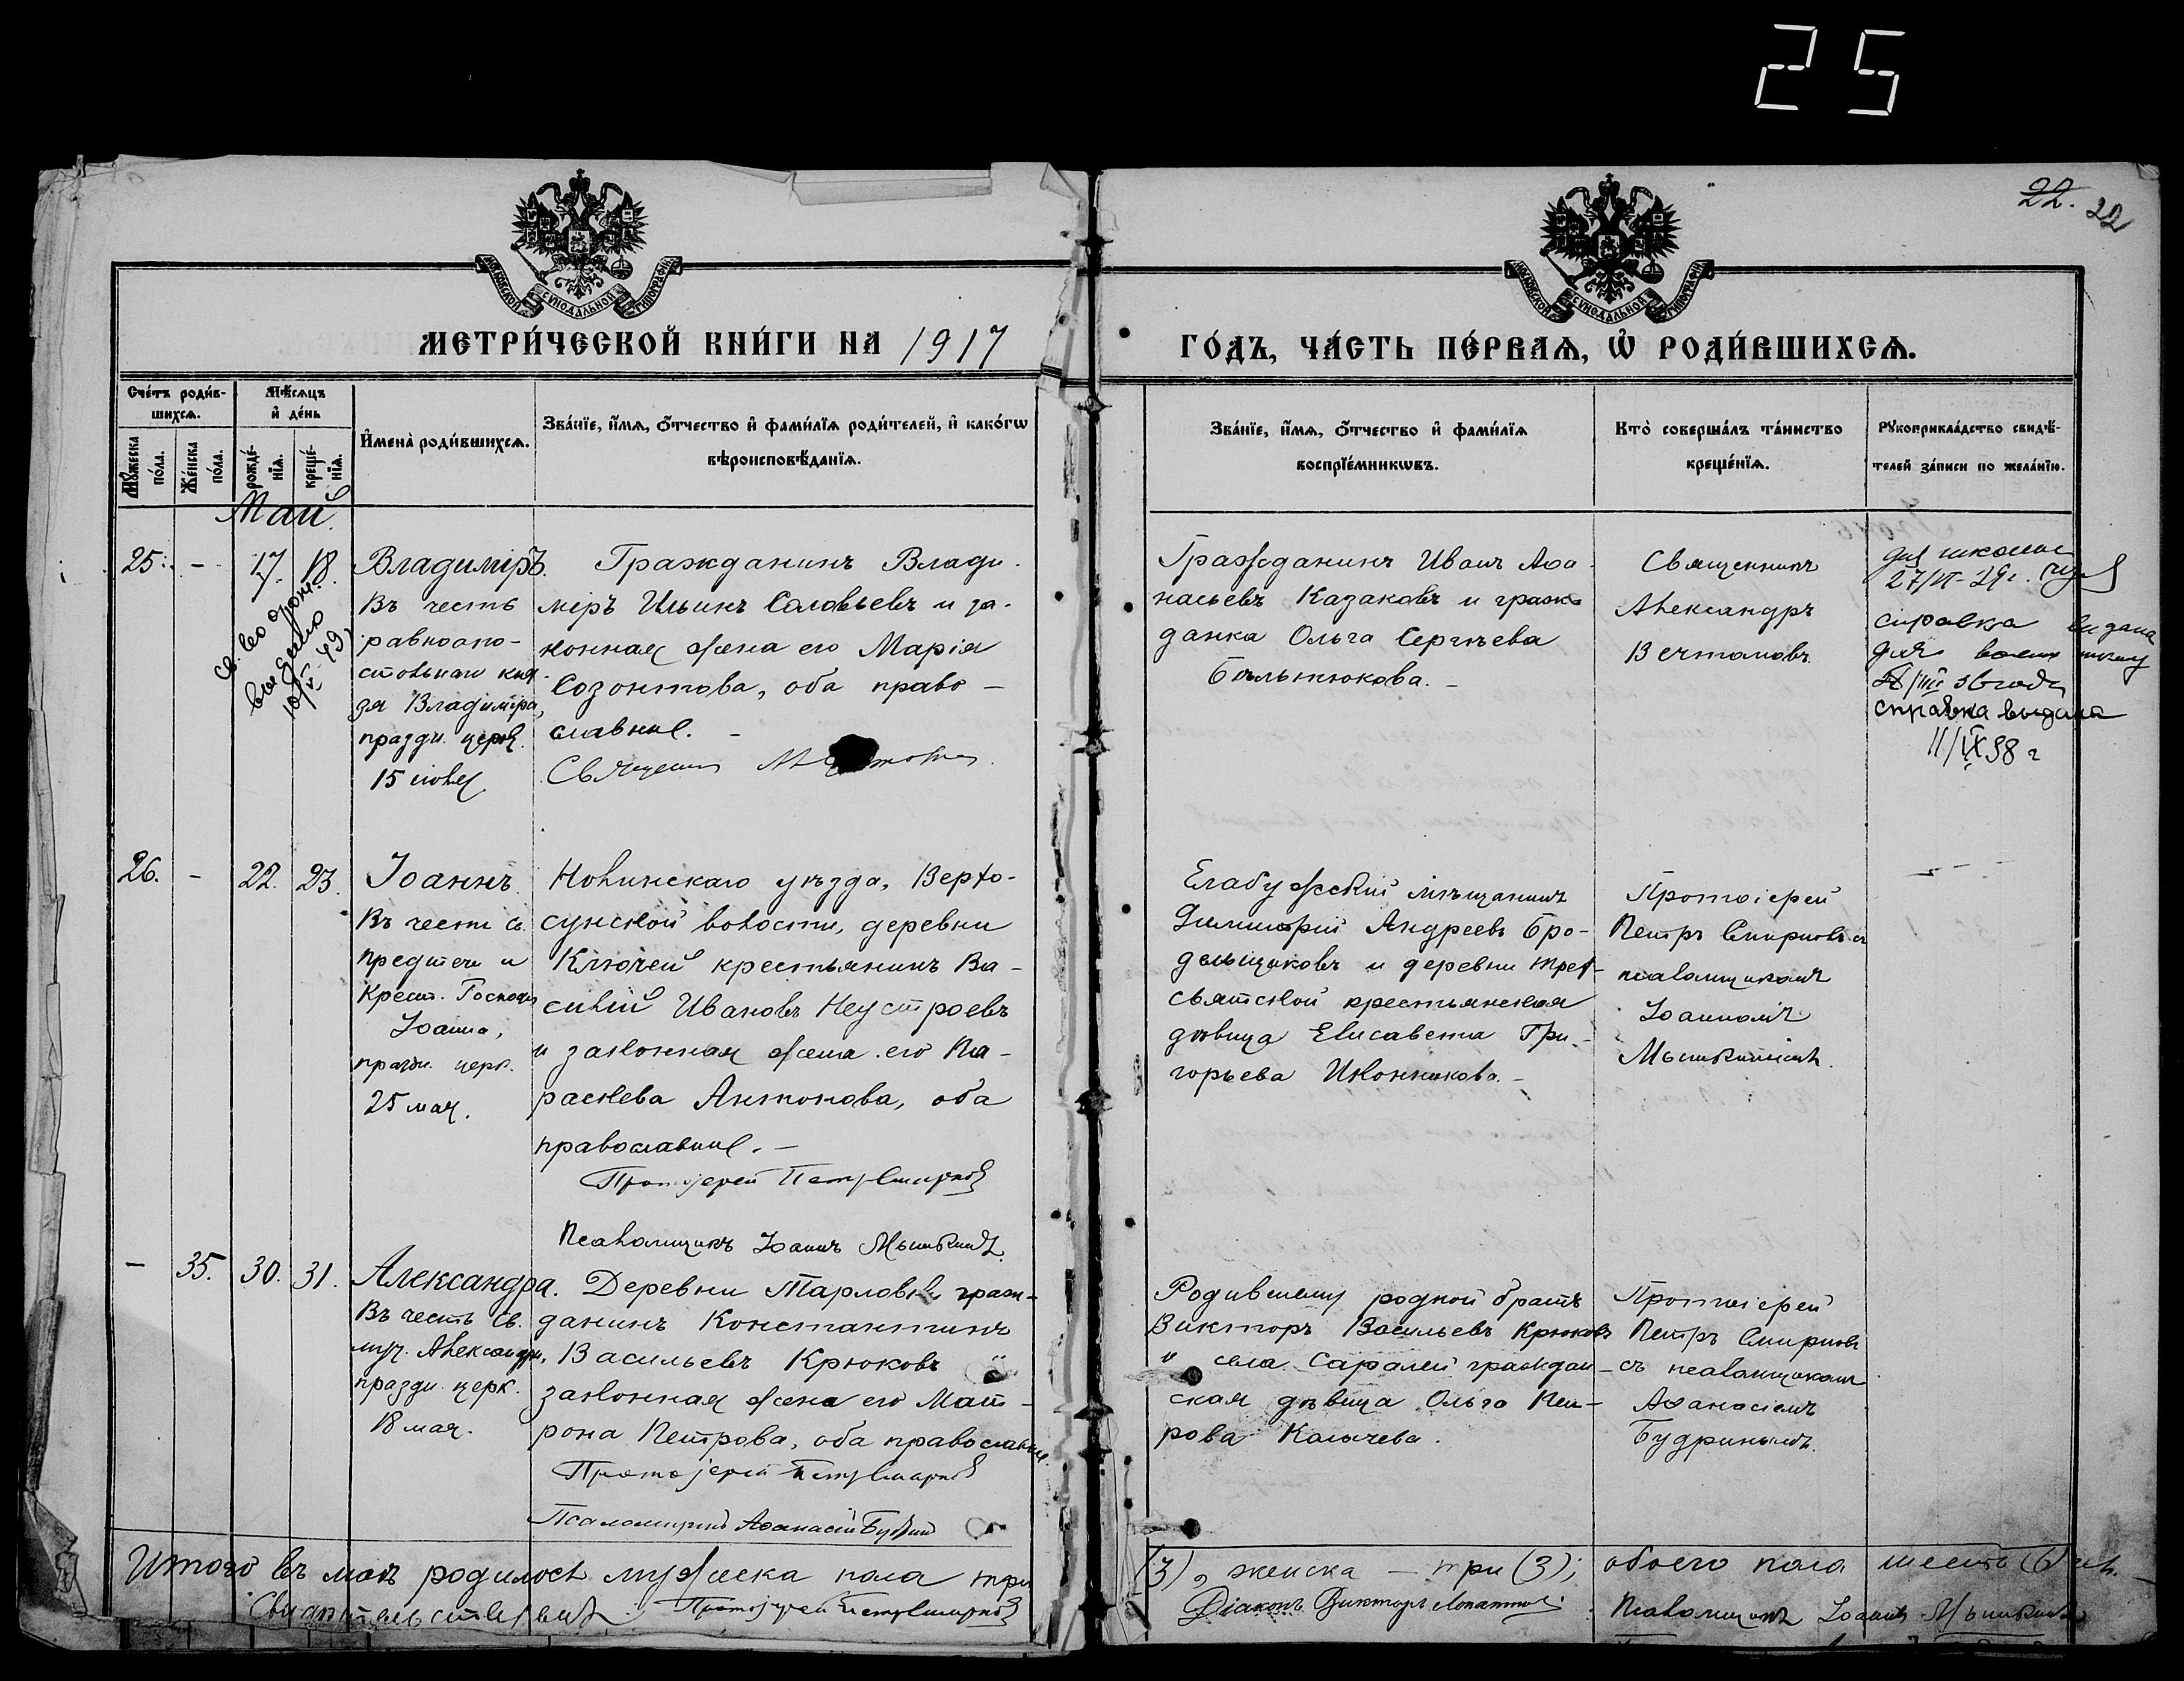 25
22. 22
МОСКОВСКОЙ СѴНОДАЛЬНОЙ ТИПОГРАФІИ
МОСКОВСКОЙ СѴНОДАЛЬНОЙ ТИПОГРАФІИ
МЕТРИ́ЧЕСКОЙ КНИ́ГИ НА 1917
ГО́ДЪ, ЧА́СТЬ ПЕ́РВАѦ, Ѡ҆ РОДИ́ВШИХСѦ.
Сче́тъ роди́в-
шихсѧ.
Мꙋ́жеска
по́ла.
Же́нска
по́ла.
Мѣ́сѧцъ
и҆ де́нь
рожде́-
нїѧ.
креще́-
нїѧ.
И҆мена̀ роди́вшихсѧ.
Зва́нїе, и҆́мѧ, ѻ҆́тчество и҆ фами́лїѧ роди́телей, и҆ како́гѡ
вѣроисповѣ́данїѧ.
Зва́нїе, и҆́мѧ, ѻ҆́тчество и҆ фами́лїѧ
воспрїе́мникѡвъ.
Кто̀ соверша́лъ та́инство
креще́нїѧ.
Рꙋкоприкла́дство свидѣ́-
телей за́писи по жела́нїю.
Май.
25. - 17. 18.
Владиміръ.
Въ честь
равноапо-
стольнаго кня-
зя Владиміра,
праздн. церк.
15 іюля
Гражданинъ Влади-
міръ Ильинъ Соловьевъ и за-
конная жена его Марія
Созонтова, оба право-
славные. -
Священник
Гражданинъ Иванъ Аѳа-
насьевъ Казаковъ и граж-
данка Ольга Сергѣева
Бѣльтюкова. -
Священникъ
Александръ
Вечтомовъ.
для школы
27/VI-29г.
справка выдана
для воен
36 года
справка выдана
11/IX 38 г
26. - 22. 23.
Іоаннъ.
Въ честь св.
Предтечи и
Крест. Господня
Іоанна,
праздн. церк.
25 мая.
Нолинскаго уѣзда, Верхо-
сунской волости, деревни
Ключей крестьянинъ Ва-
силій Ивановъ Неустроевъ
и законная жена его Па-
раскева Антонова, оба
православные. -
Протоіерей Петръ Смирновъ
Псаломщикъ Іоаннъ Мышкинъ.
Елабужскій мѣщанинъ
Димитрій Андреевъ Бро-
дельщиковъ и деревни Трех-
святской крестьянская
дѣвица Елисавета Гри-
горьева Иконникова. -
Протоіерей
Петръ Смирновъ съ
псаломщикомъ
Іоанномъ
Мышкинымъ.
- 35. 30. 31.
Александра.
Въ честь св.
муч. Александры,
праздн. церк.
18 мая.
Деревни Тарловки граж-
данинъ Константинъ
Васильевъ Крюковъ и
законная жена его Мат-
рона Петрова, оба православные.
Протоіерей Петръ Смирновъ
Псаломщикъ Аѳанасій Будринъ
Родившему родной братъ
Викторъ Васильевъ Крюковъ
и села Саралей граждан-
ская дѣвица Ольга Пет-
рова Калачева.
Протоіерей
Петръ Смирновъ
съ псаломщикомъ
Аѳанасіемъ
Будринымъ.
Итого въ маѣ родилось мужеска пола три
(3), женска - три (3); обоего пола шесть (6) чел.
Свидѣтельствуемъ. Протоіерей Петръ Смирновъ
Діаконъ Викторъ
Псаломщикъ Іоаннъ Мышкинъ